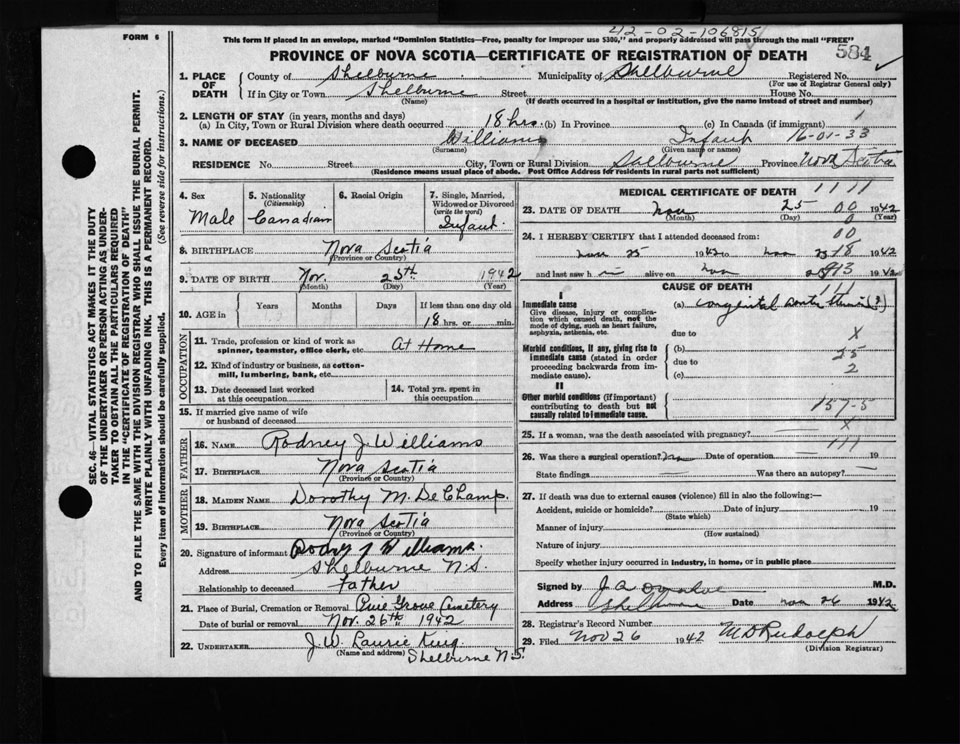 42-02-106815
FORM 6
This form if placed in an envelope, marked "Dominion Statistics—Free, penalty for improper use $300," and properly addressed will pass through the mail "FREE"
PROVINCE OF NOVA SCOTIA—CERTIFICATE OF REGISTRATION OF DEATH
584
SEC. 46—VITAL STATISTICS ACT MAKES IT THE DUTY
OF THE UNDERTAKER OR PERSON ACTING AS UNDER-
TAKER TO OBTAIN ALL THE PARTICULARS REQUIRED
IN THE "CERTIFICATE OF REGISTRATION OF DEATH"
AND TO FILE THE SAME WITH THE DIVISION REGISTRAR WHO SHALL ISSUE THE BURIAL PERMIT.
WRITE PLAINLY WITH UNFADING INK. THIS IS A PERMANENT RECORD.
Every item of information should be carefully supplied. (See reverse side for instructions.)
1. PLACE OF DEATH
County of Shelburne Municipality of Shelburne Registered No.
(For use of Registrar General only)
If in City or Town Shelburne Street House No.
(Name) (If death occurred in a hospital or institution, give the name instead of street and number)
2. LENGTH OF STAY (in years, months and days)
(a) In City, Town or Rural Division where death occurred 18 hrs. (b) In Province (c) In Canada (if immigrant) 1
3. NAME OF DECEASED Williams Infant 16-01-33
(Surname) (Given name or names)
RESIDENCE No. Street City, Town or Rural Division Shelburne Province Nova Scotia
(Residence means usual place of abode. Post Office Address for residents in rural parts not sufficient)
4. Sex Male
5. Nationality (Citizenship) Canadian
6. Racial Origin
7. Single, Married, Widowed or Divorced (write the word) Infant
8. BIRTHPLACE Nova Scotia
(Province or Country)
9. DATE OF BIRTH Nov. 25th 1942
(Month) (Day) (Year)
10. AGE in Years Months Days If less than one day old
18 hrs. or min.
OCCUPATION
11. Trade, profession or kind of work as spinner, teamster, office clerk, etc At Home
12. Kind of industry or business, as cotton-mill, lumbering, bank, etc
13. Date deceased last worked at this occupation
14. Total yrs. spent in this occupation
15. If married give name of wife or husband of deceased
FATHER
16. NAME Rodney J. Williams
17. BIRTHPLACE Nova Scotia
(Province or Country)
MOTHER
18. MAIDEN NAME Dorothy M. De Champ.
19. BIRTHPLACE Nova Scotia
(Province or Country)
20. Signature of informant Rodny J Williams.
Address Shelburne N.S.
Relationship to deceased Father
21. Place of Burial, Cremation or Removal Pine Grove Cemetery
Date of burial or removal Nov. 26th 1942
22. UNDERTAKER J.W. Laurie King
(Name and address) Shelburne N.S.
MEDICAL CERTIFICATE OF DEATH 1111
23. DATE OF DEATH Nov 25 00 1942
(Month) (Day) (Year)
0
24. I HEREBY CERTIFY that I attended deceased from: 00
Nov 25 1942 to Nov 25 18 1942
and last saw h im alive on Nov 913 1942
CAUSE OF DEATH 111
I
Immediate cause
Give disease, injury or complication which caused death, not the mode of dying, such as heart failure, asphyxia, asthenia, etc.
(a) Congenital (?)
due to X
Morbid conditions, if any, giving rise to immediate cause (stated in order proceeding backwards from immediate cause).
(b) 25
due to 2
(c)
II
Other morbid conditions (if important) contributing to death but not causally related to immediate cause.
157-5
25. If a woman, was the death associated with pregnancy? X
111
26. Was there a surgical operation? Date of operation 19
State findings Was there an autopsy?
27. If death was due to external causes (violence) fill in also the following:—
Accident, suicide or homicide? Date of injury 19
(State which)
Manner of injury
(How sustained)
Nature of injury
Specify whether injury occurred in industry, in home, or in public place
Signed by M.D.
Address Shelburne Date Nov 26 1942
28. Registrar's Record Number
29. Filed Nov 26 1942 M D Rudolph
(Division Registrar)